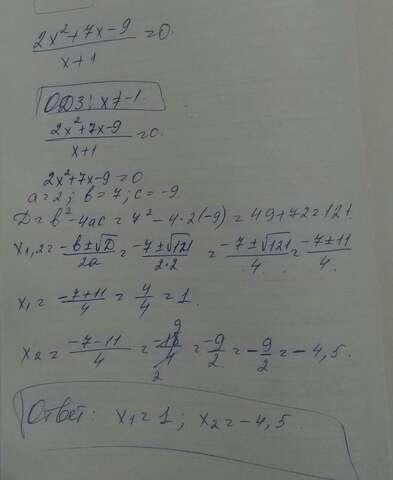 2x²+7x-9/x+1 =0.
ОДЗ: x≠-1.
2x²+7x-9/x+1 =0.
2x²+7x-9=0
a=2; b=7; c=-9.
D=b²-4ac=7²-4·2(-9)=49+72=121.
x1,2= -b±√D/2a = -7±√121/2·2 = -7±√121/4 = -7±11/4.
x1= -7+11/4 = 4/4 = 1.
x2= -7-11/4 = -18 9/4 2 = -9/2 = -9/2 = -4,5.
Ответ: x1=1; x2=-4,5